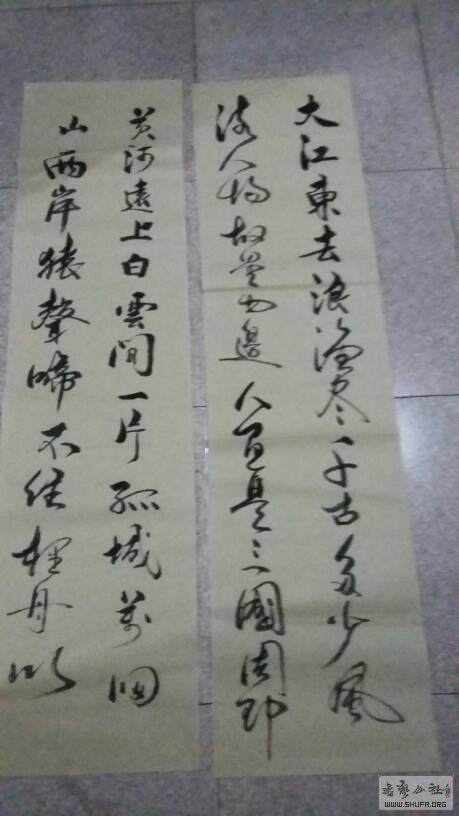 大江東去浪淘尽千古多少風
流人物故壘西邊人道是三國周郎
黄河遠上白雲間一片孤城萬仞
山两岸猿聲啼不住輕舟以
書藝公社
WWW.SHUFA.ORG